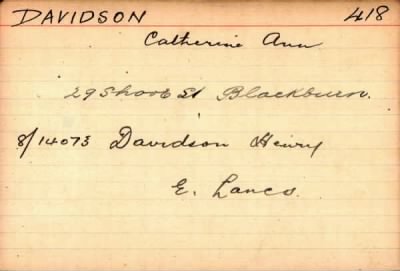 DAVIDSON 418
Catherine Ann
29 St Blackburn.
8/14073 Davidson Henry
E. Lancs.